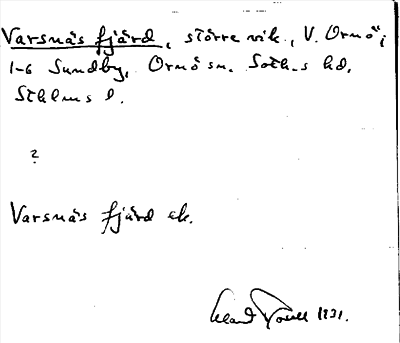 Varsnäs fjärd, större vik, V. Ornö i
1-6 Sundby, Ornö sn. Soth-s hd.
Sthlms l.
?
Varsnäs fjärd ek.
1931.